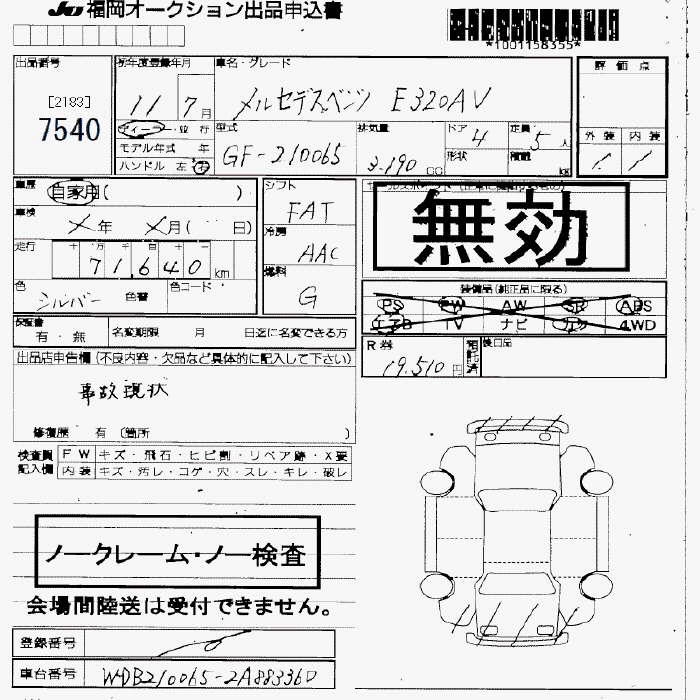 JU 福岡オークション出品申込書
*1001158355*
出品番号
[2183]
7540
初年度登録年月
11 7 月
車名・グレード
メルセデスベンツ E320AV
評価点
外装 内装
1 1
ディーラー・並行
モデル年式 年
ハンドル 左 右
型式
GF-210065
排気量
3.190 CC
ドア 4
形状
定員 5 人
積載 kg
車歴 自家用( )
車検 メ年 メ月( 日)
走行 十 万 千 百 十 一
71,640 km
色 シルバー 色番 色コード
シフト
FAT
冷房
AAC
燃料
G
無効
装備品(純正品に限る)
PS PW AW SR ABS
エアB TV ナビ カワ 4WD
保証書
有・無
名変期限 月 日迄に名変できる方
R券
19,510 円
預託済
後日品
出品店申告欄(不良内容・欠品など具体的に記入して下さい)
事故現状
修復歴 有 (箇所 )
検査員記入欄
FW キズ・飛石・ヒビ割・リペア跡・X要
内装 キズ・汚レ・コゲ・穴・スレ・キレ・破レ
ノークレーム・ノー検査
会場間陸送は受付できません。
登録番号
車台番号 WDB210065-2A883360